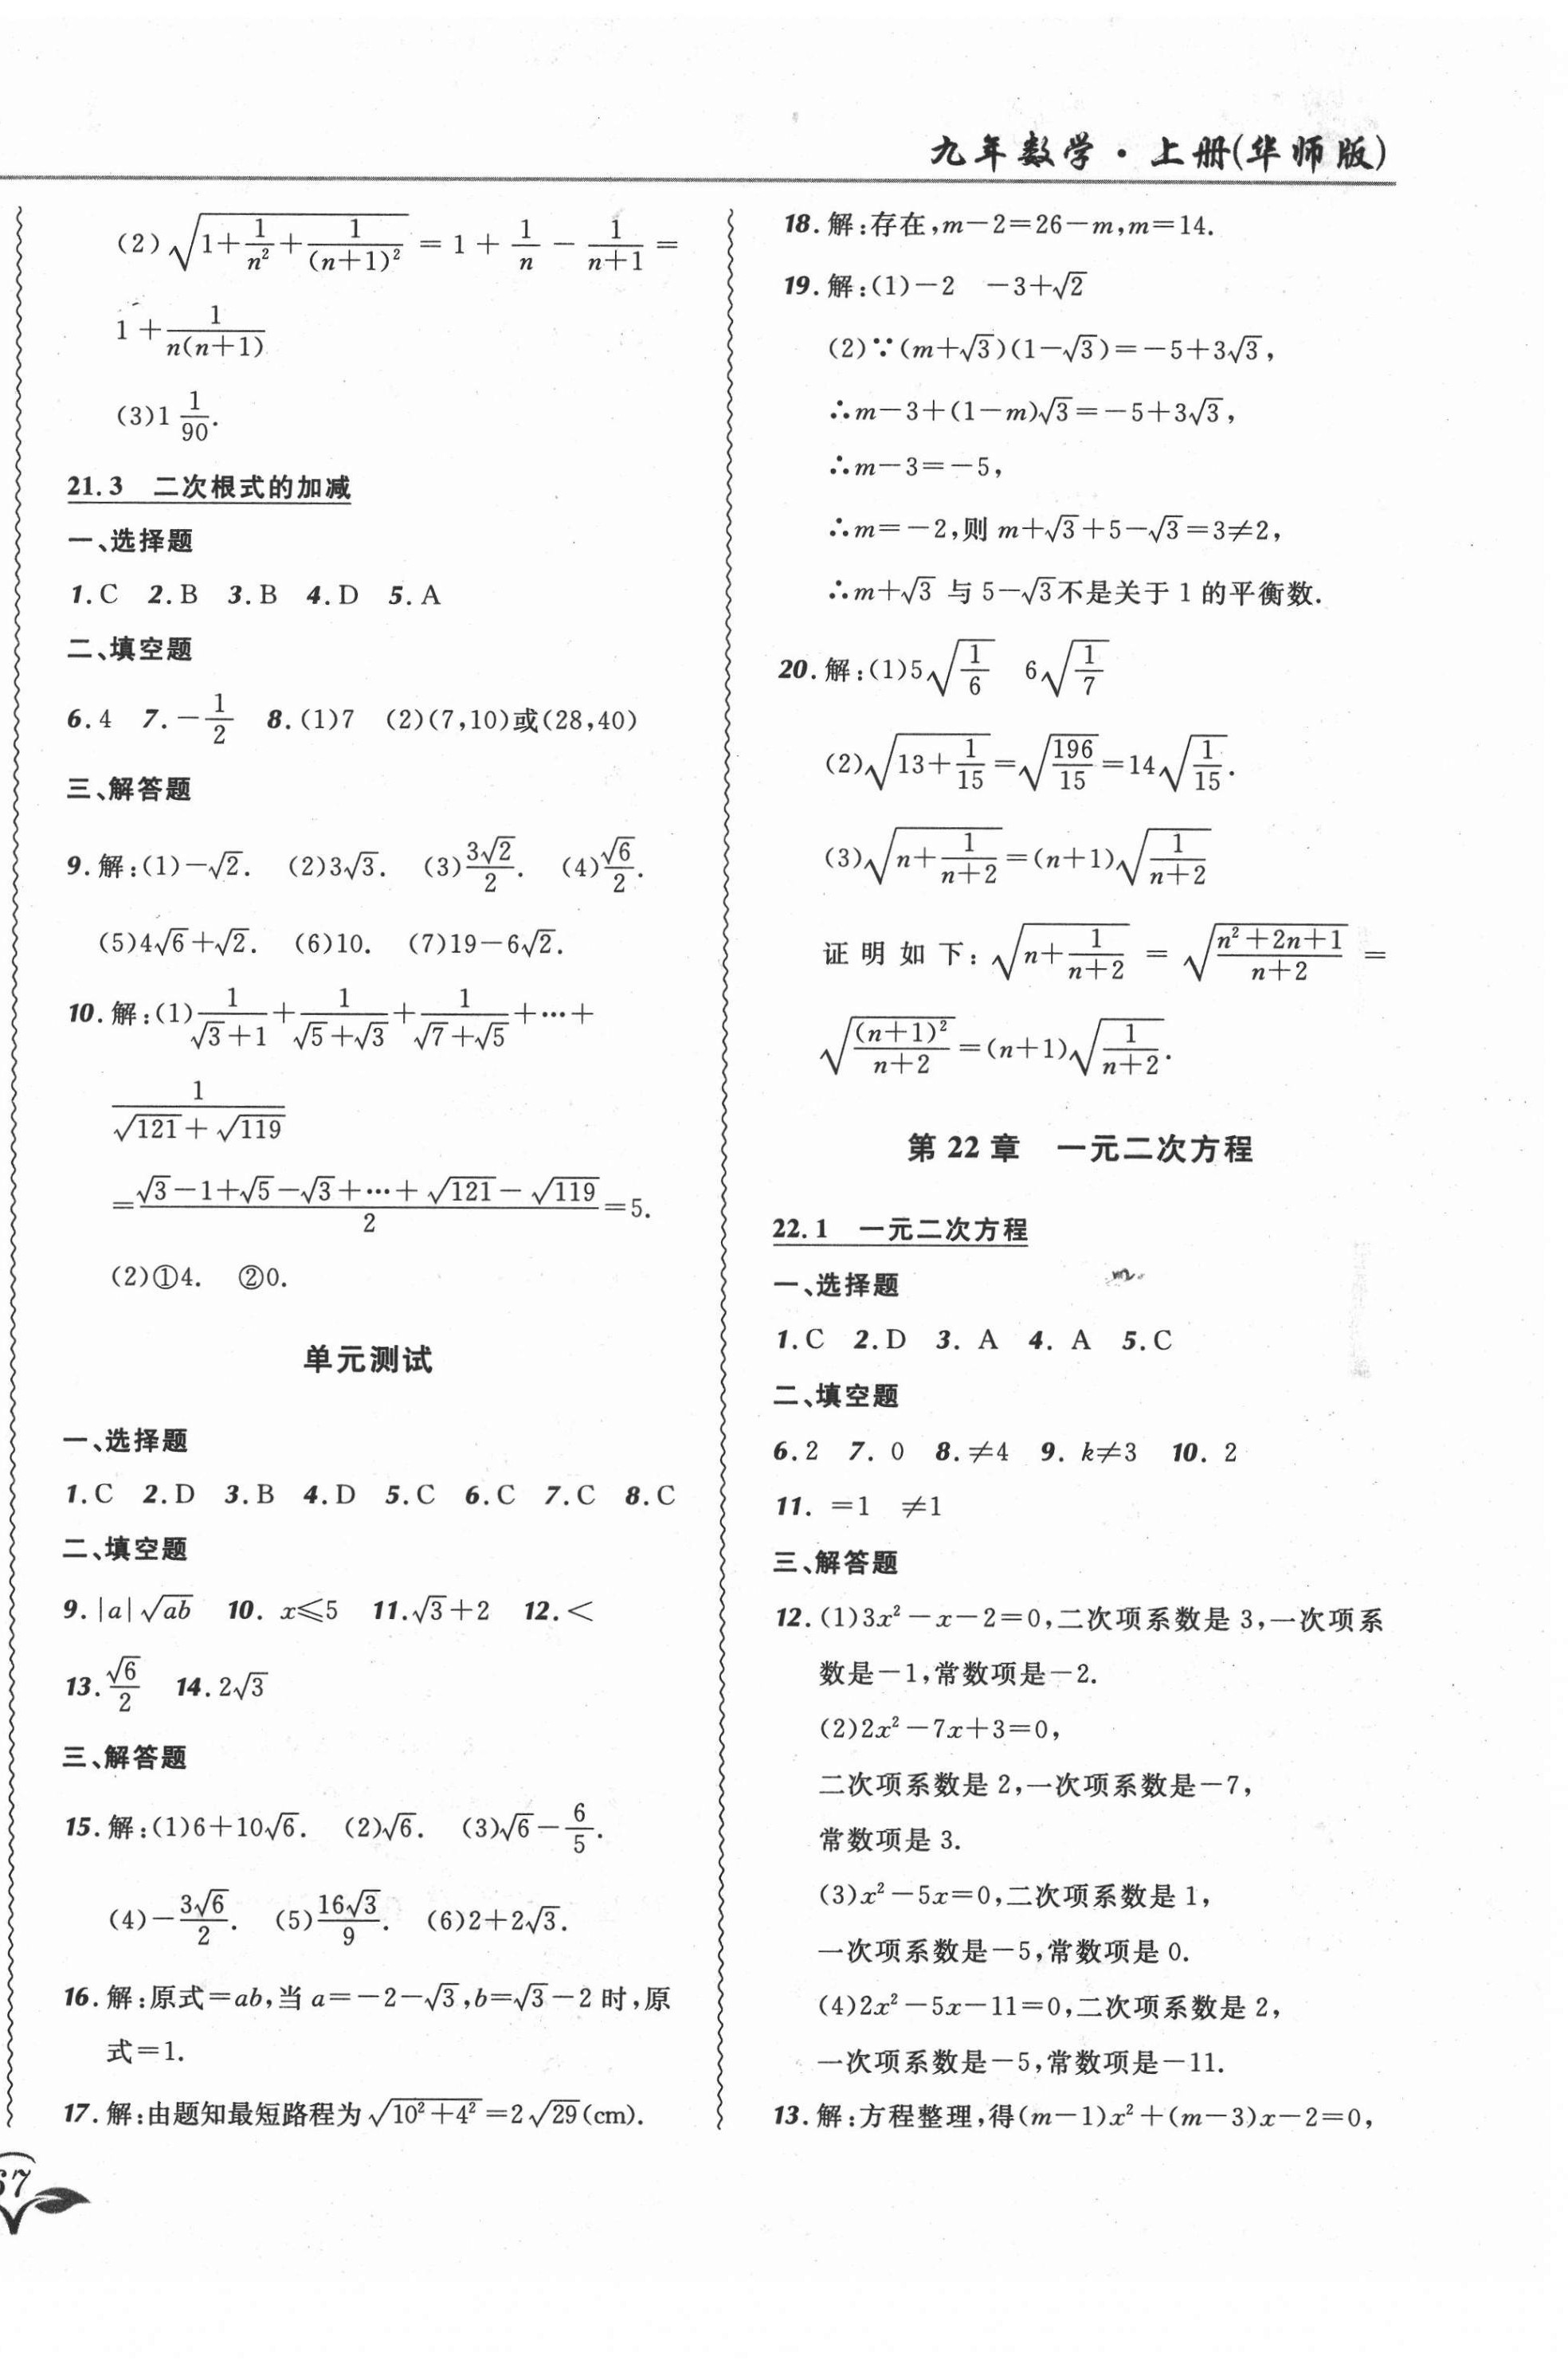 九年数学·上册(华师版)
(2)√(1+1/n²+1/(n+1)²)=1+1/n-1/(n+1)=
1+1/(n(n+1))
(3)1 1/90.
21.3 二次根式的加减
一、选择题
1.C 2.B 3.B 4.D 5.A
二、填空题
6.4 7.-1/2 8.(1)7 (2)(7,10)或(28,40)
三、解答题
9.解:(1)-√2. (2)3√3. (3)3√2/2. (4)√6/2.
(5)4√6+√2. (6)10. (7)19-6√2.
10.解:(1)1/(√3+1)+1/(√5+√3)+1/(√7+√5)+…+
1/(√121+√119)
=(√3-1+√5-√3+…+√121-√119)/2=5.
(2)①4. ②0.
单元测试
一、选择题
1.C 2.D 3.B 4.D 5.C 6.C 7.C 8.C
二、填空题
9.|a|√ab 10. x≤5 11.√3+2 12.<
13.√6/2 14.2√3
三、解答题
15.解:(1)6+10√6. (2)√6. (3)√6-6/5.
(4)-3√6/2. (5)16√3/9. (6)2+2√3.
16.解:原式=ab,当a=-2-√3,b=√3-2时,原
式=1.
17.解:由题知最短路程为√(10²+4²)=2√29(cm).
67
18.解:存在,m-2=26-m,m=14.
19.解:(1)-2 -3+√2
(2)∵(m+√3)(1-√3)=-5+3√3,
∴m-3+(1-m)√3=-5+3√3,
∴m-3=-5,
∴m=-2,则m+√3+5-√3=3≠2,
∴m+√3与5-√3不是关于1的平衡数.
20.解:(1)5√(1/6) 6√(1/7)
(2)√(13+1/15)=√(196/15)=14√(1/15).
(3)√(n+1/(n+2))=(n+1)√(1/(n+2))
证明如下:√(n+1/(n+2))=√((n²+2n+1)/(n+2))=
√((n+1)²/(n+2))=(n+1)√(1/(n+2)).
第22章 一元二次方程
22.1 一元二次方程
一、选择题
1.C 2.D 3. A 4. A 5.C
二、填空题
6.2 7. 0 8.≠4 9. k≠3 10. 2
11. =1 ≠1
三、解答题
12.(1)3x²-x-2=0,二次项系数是3,一次项系
数是-1,常数项是-2.
(2)2x²-7x+3=0,
二次项系数是2,一次项系数是-7,
常数项是3.
(3)x²-5x=0,二次项系数是1,
一次项系数是-5,常数项是0.
(4)2x²-5x-11=0,二次项系数是2,
一次项系数是-5,常数项是-11.
13.解:方程整理,得(m-1)x²+(m-3)x-2=0,